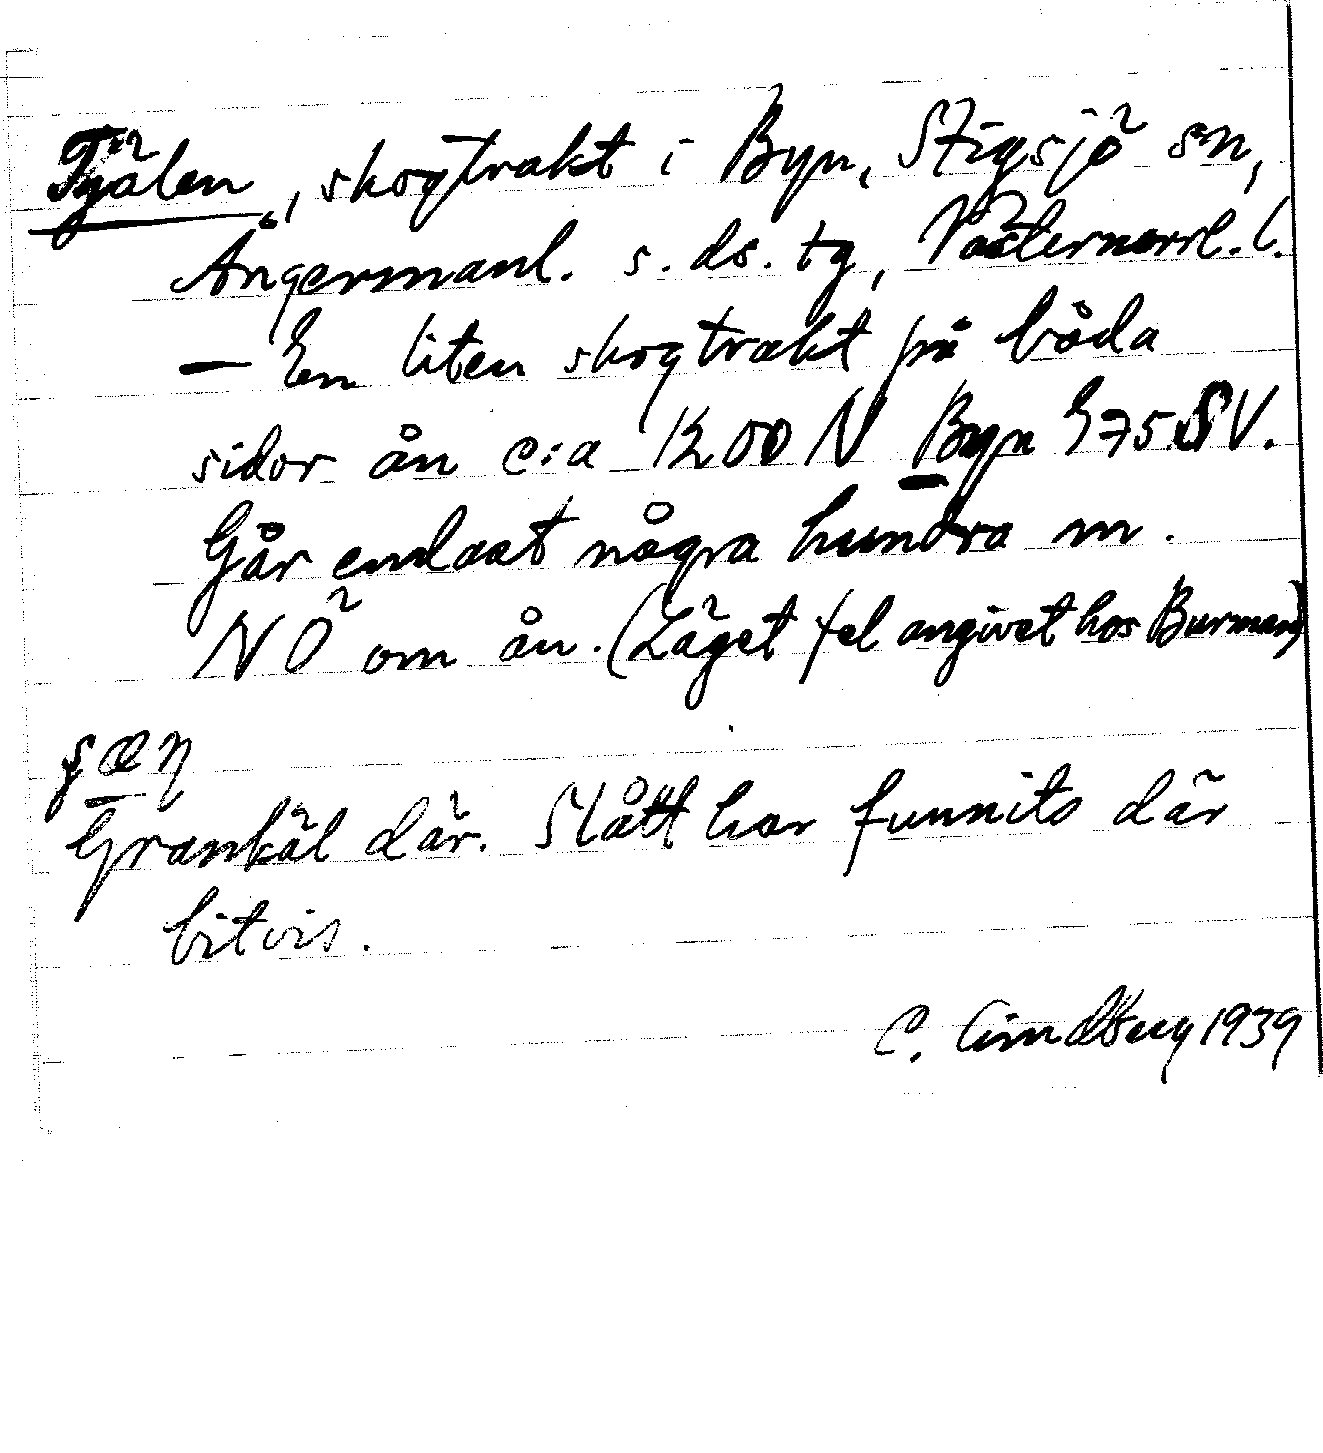 Tjälen, skogtrakt i Byn, Stigsjö sn,
Ångermanl. s. ds. tg, Västernorrl. l.
— En liten skogtrakt på båda
sidor ån c:a 1200 N Byn 375 SV.
Går endast några hundra m.
NÖ om ån. (Läget fel angivet hos Burman)
Grankäl där. Slått har funnits där
bitvis.
C. Lindberg 1939